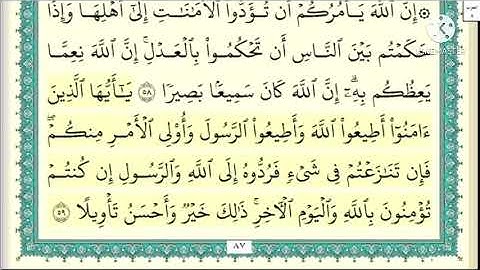 ۞ إِنَّ ٱللَّهَ يَأْمُرُكُمْ أَن تُؤَدُّوا۟ ٱلْأَمَـٰنَـٰتِ إِلَىٰٓ أَهْلِهَا وَإِذَا
حَكَمْتُم بَيْنَ ٱلنَّاسِ أَن تَحْكُمُوا۟ بِٱلْعَدْلِ ۚ إِنَّ ٱللَّهَ نِعِمَّا
يَعِظُكُم بِهِۦٓ ۗ إِنَّ ٱللَّهَ كَانَ سَمِيعًۢا بَصِيرًا ٥٨ يَـٰٓأَيُّهَا ٱلَّذِينَ
ءَامَنُوٓا۟ أَطِيعُوا۟ ٱللَّهَ وَأَطِيعُوا۟ ٱلرَّسُولَ وَأُو۟لِى ٱلْأَمْرِ مِنكُمْ ۖ
فَإِن تَنَـٰزَعْتُمْ فِى شَىْءٍ فَرُدُّوهُ إِلَى ٱللَّهِ وَٱلرَّسُولِ إِن كُنتُمْ
تُؤْمِنُونَ بِٱللَّهِ وَٱلْيَوْمِ ٱلْـَٔاخِرِ ۚ ذَٰلِكَ خَيْرٌ وَأَحْسَنُ تَأْوِيلًا ٥٩
٨٧